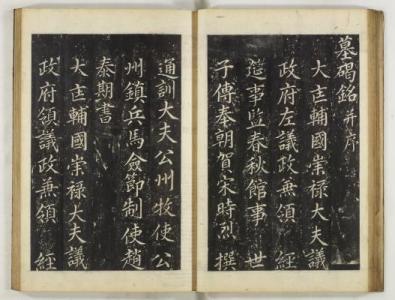 墓碣銘 并序
大匡輔國崇祿大夫議
政府左議政兼領 經
筵事監春秋館事 世
子傅奉朝賀宋時烈 撰
通訓大夫公州牧使公
州鎮兵馬僉節制使趙
泰期書
大匡輔國崇祿大夫議
政府領議政兼領 經